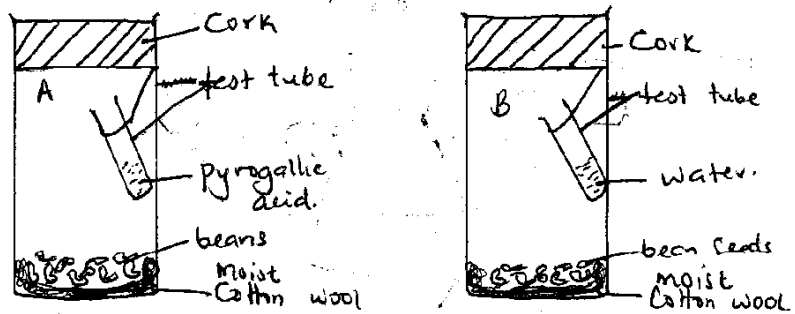 Cork
A
test tube
pyrogallic
acid.
beans
moist
Cotton wool
Cork
B
test tube
water.
bean seads
moist
Cotton wool